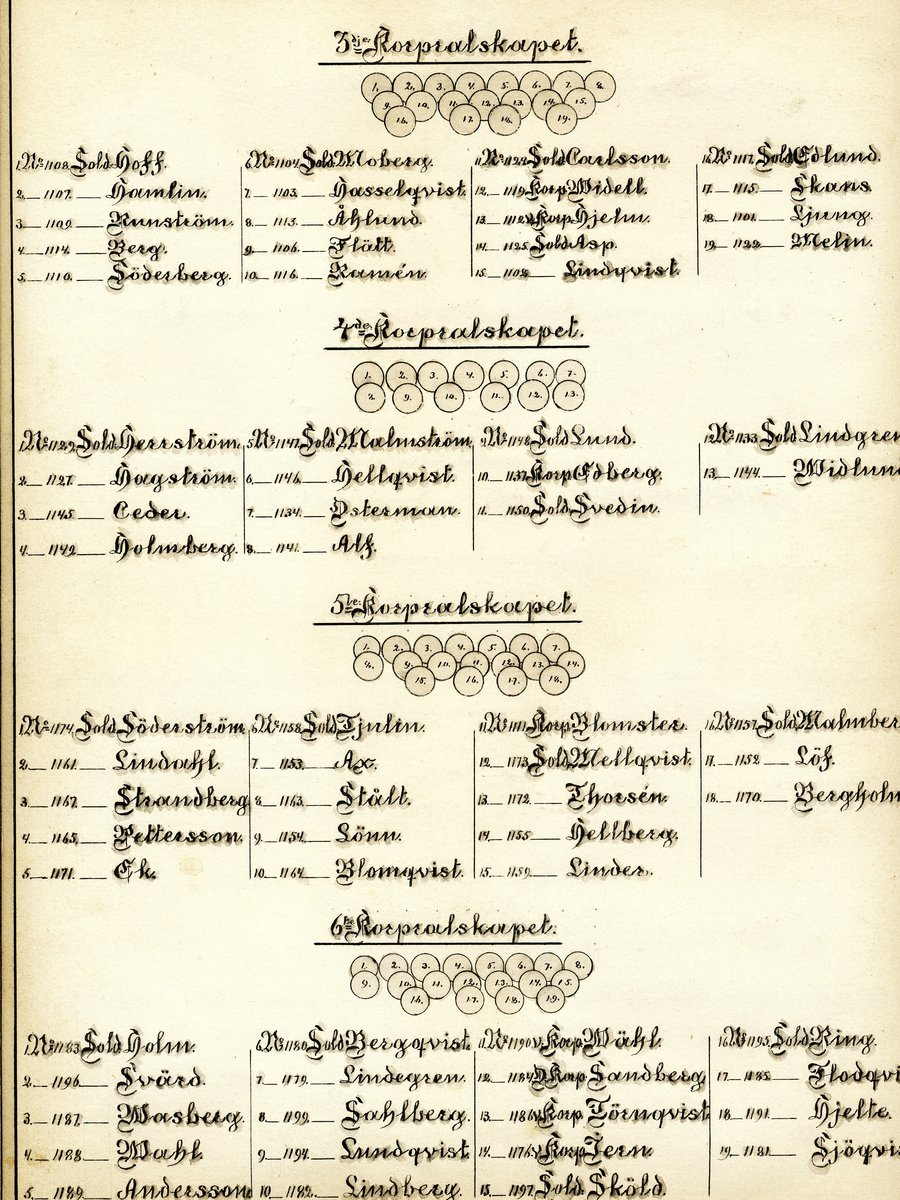 3dje Korpralskapet.
1. 2. 3. 4. 5. 6. 7. 8.
9. 10. 11. 12. 13. 14. 15.
16. 17. 18. 19.
1. No 1108. Sold Hoff. 6. No 1104. Sold Moberg. 11. No 1122. Sold Carlsson. 16. No 1117. Sold Edlund.
2. 1107. Hamlin. 7. 1103. Hasselqvist. 12. 1119. Korp Widell. 17. 1115. Skans.
3. 1109. Runström. 8. 1113. Åhlund. 13. Korp Hjelm. 18. 1101. Ljung.
4. 1114. Berg. 9. 1106. Flätt. 14. 1125. Sold Asp. 19. 1122. Melin.
5. 1110. Söderberg. 10. 1116. Ramén. 15. 1102. Lindqvist.
4de Korpralskapet.
1. 2. 3. 4. 5. 6. 7.
8. 9. 10. 11. 12. 13.
1. No 1129. Sold Herrström. 5. No 1147. Sold Malmström. 9. No 1148. Sold Lund. 12. No 1133. Sold Lindgren
2. 1127. Hagström. 6. 1146. Hellqvist. 10. 1137. Korp Edberg. 13. 1144. Widlund
3. 1145. Ceder. 7. 1134. Österman. 11. 1150. Sold Svedin.
4. 1149. Holmberg. 8. 1141. Alf.
5te Korpralskapet.
1. 2. 3. 4. 5. 6. 7.
8. 9. 10. 11. 12. 13. 14.
15. 16. 17. 18.
1. No 1174. Sold Söderström. 6. No 1158. Sold Tjulin. 11. No 1171. Korp Blomster. 16. No 1157. Sold Malmber
2. 1161. Lindahl. 7. 1153. Ax. 12. 1173. Sold Mellqvist. 17. 1152. Löf.
3. 1167. Strandberg 8. 1163. Stålt. 13. 1172. Thorsén. 18. 1170. Bergholm
4. 1165. Pettersson. 9. 1154. Lönn. 14. 1155. Hellberg.
5. 1171. Ek. 10. 1164. Blomqvist. 15. 1159. Linder.
6te Korpralskapet.
1. 2. 3. 4. 5. 6. 7. 8.
9. 10. 11. 12. 13. 14. 15.
16. 17. 18. 19.
1. No 1183. Sold Holm. 6. No 1180. Sold Bergqvist. 11. No 1190. v. Korp Wåhl. 16. No 1195. Sold Ring.
2. 1196. Svärd. 7. 1179. Lindegren. 12. 1184. Korp Sandberg. 17. 1185. Flodqvi
3. 1187. Wasberg. 8. 1199. Sahlberg. 13. 1186. v. Korp Törnqvist 18. 1191. Hjelte.
4. 1188. Wahl. 9. 1194. Lundqvist. 14. 1176. v. Korp Tern. 19. 1181. Sjöqvis
5. 1189. Andersson 10. 1182. Lindberg. 15. 1197. Sold Sköld.